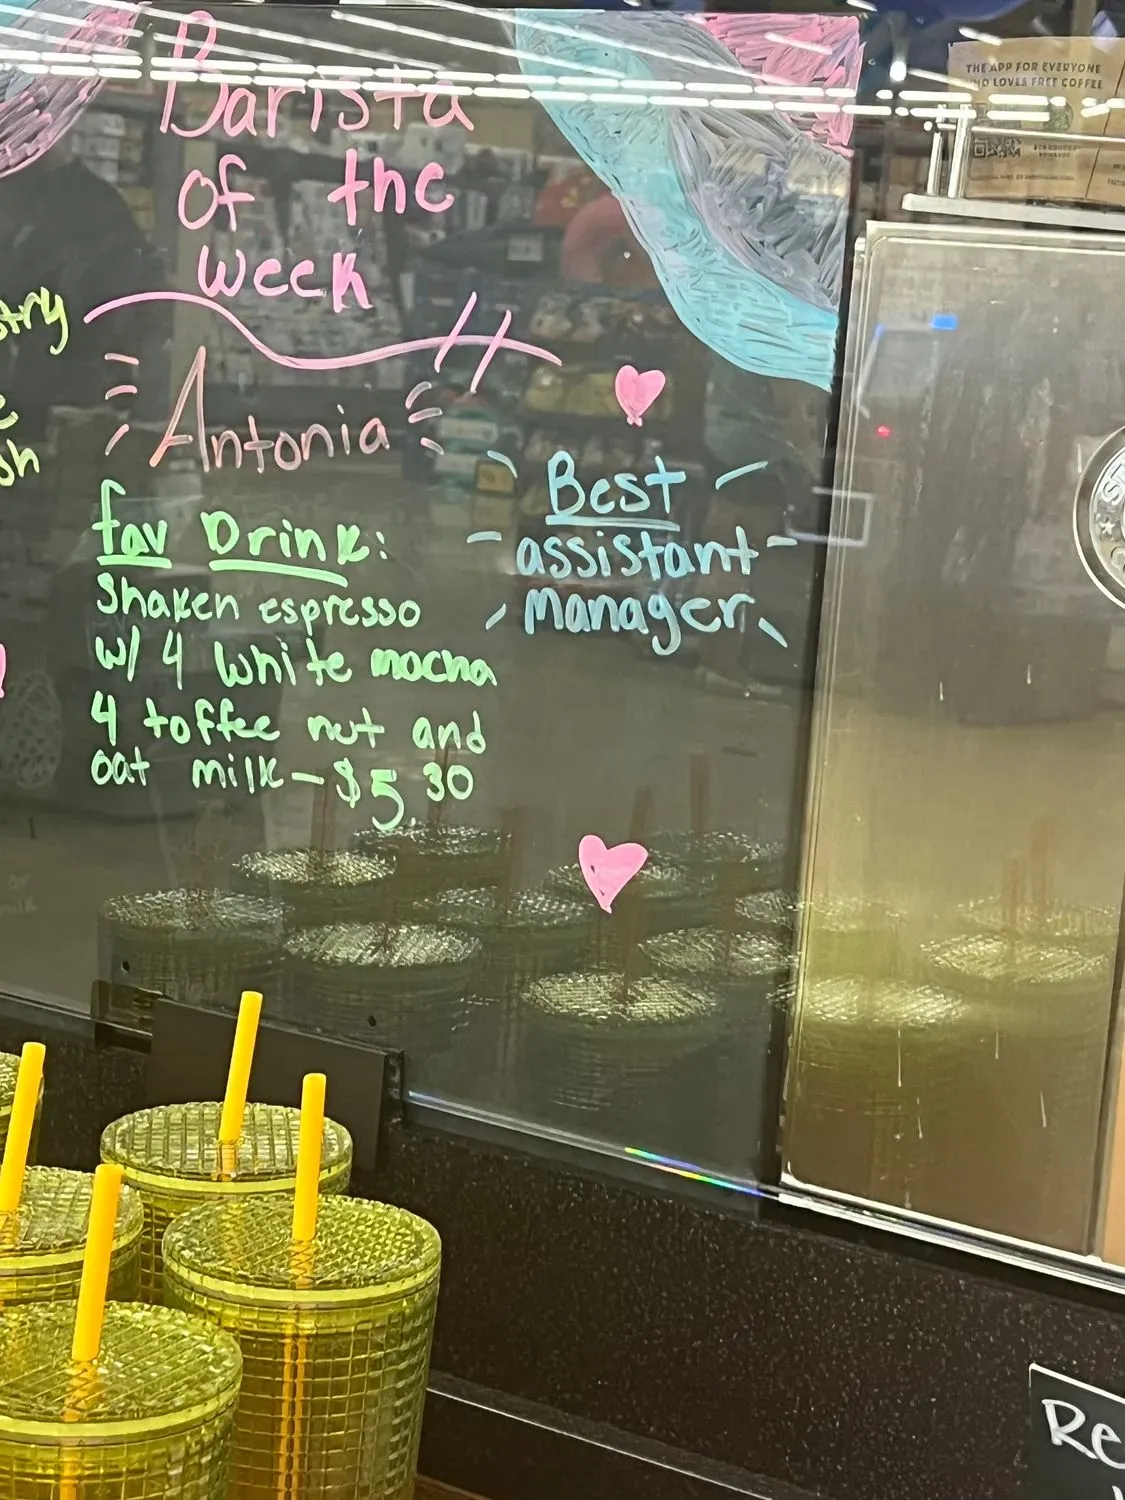 Barista
of the
week
Antonia
fav Drink:
Shaken espresso
w/ 4 white mocha
4 toffee nut and
oat milk - $5.30
Best
assistant
manager
THE APP FOR EVERYONE
WHO LOVES FREE COFFEE
Re